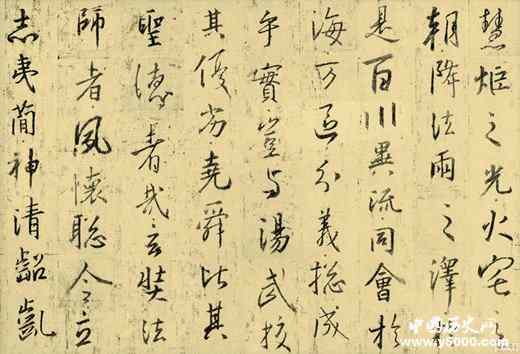 慧炬之光火宅之
朝降法雨之澤
是百川異流同會於
海万區分義揔成
乎實豈与湯武挍
其優劣堯舜比其
聖德者哉玄奘法
師者夙懷聰令立
志夷簡神清齠齔
中国历史网
www.y5000.com